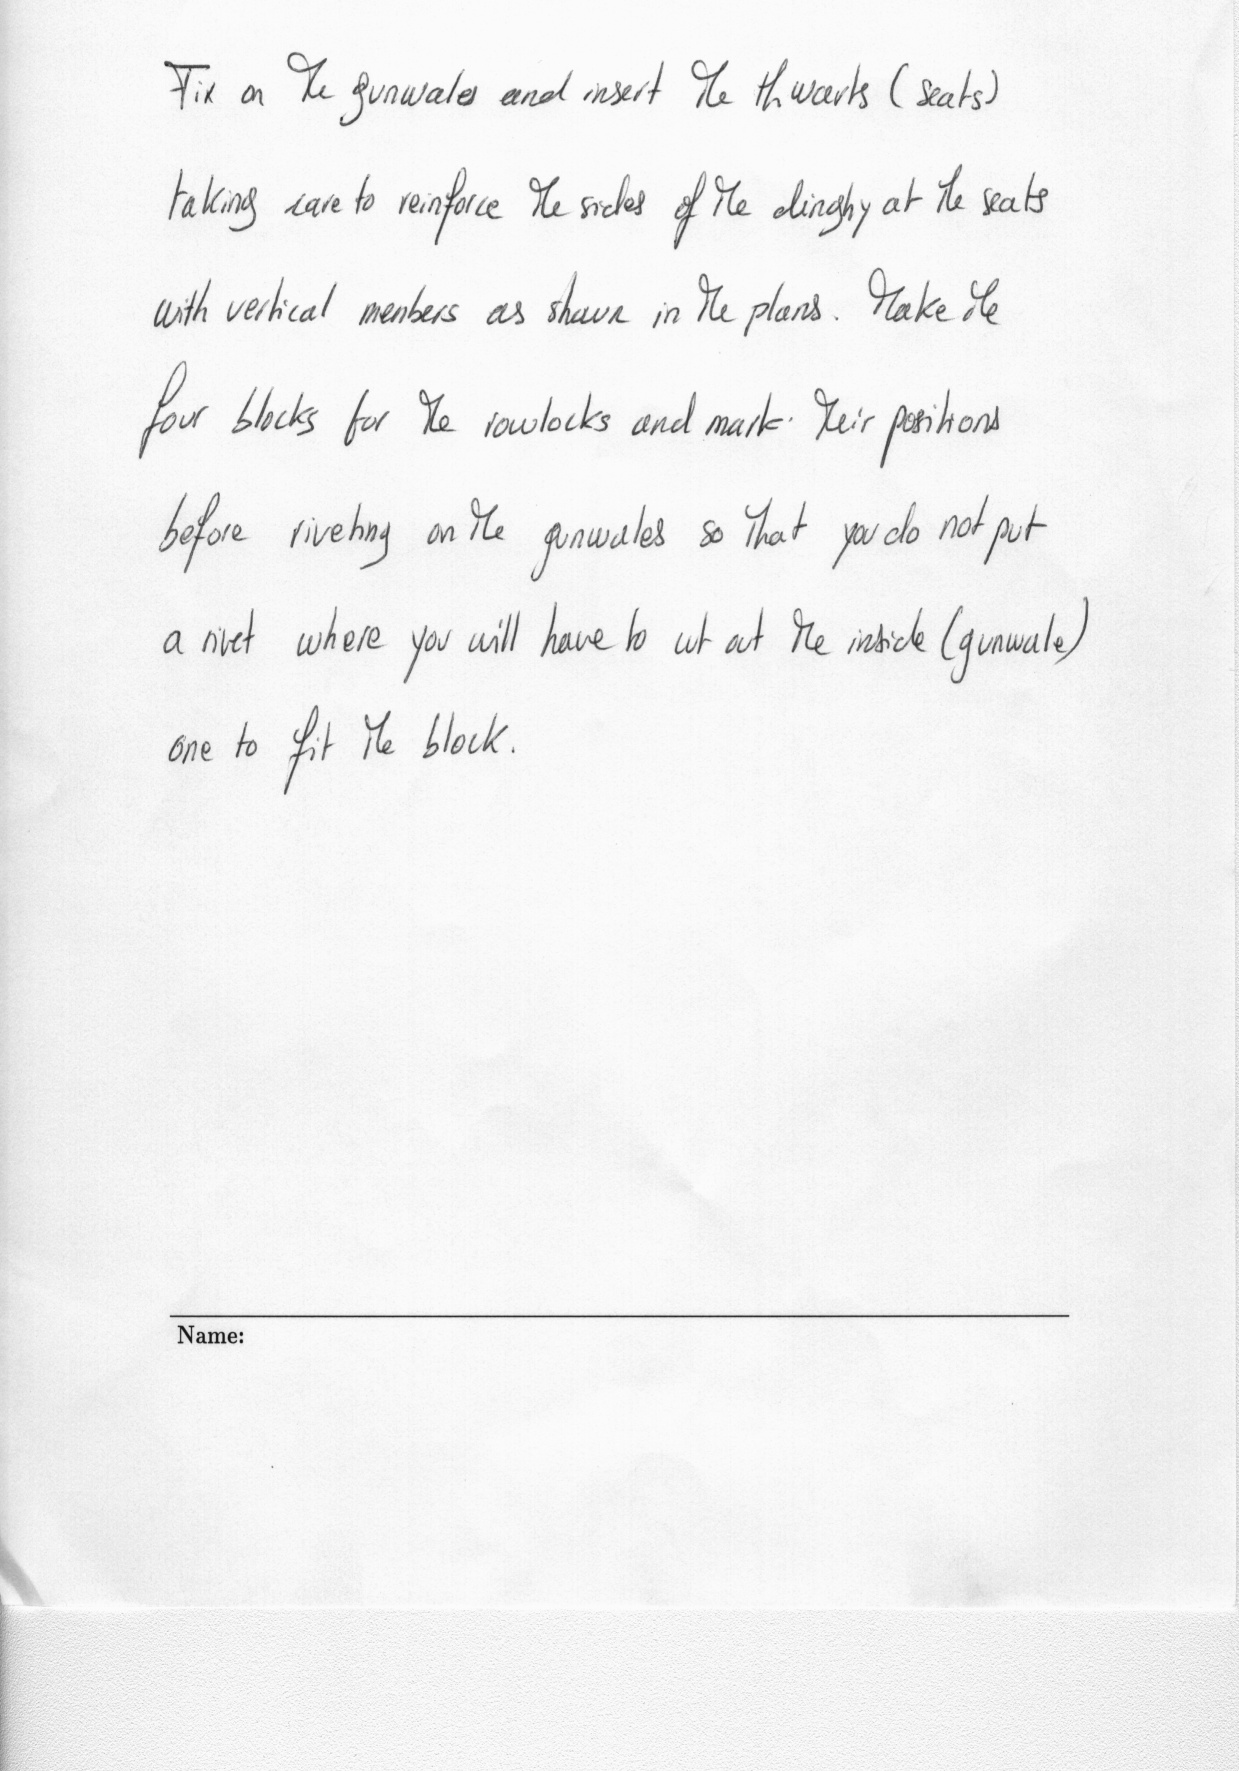 Fix on the gunwales and insert the thwarts (seats)
taking care to reinforce the sides of the dinghy at the seats
with vertical members as shown in the plans. Make the
four blocks for the rowlocks and mark their positions
before riveting on the gunwales so that you do not put
a rivet where you will have to cut out the inside (gunwale)
one to fit the block.
Name: